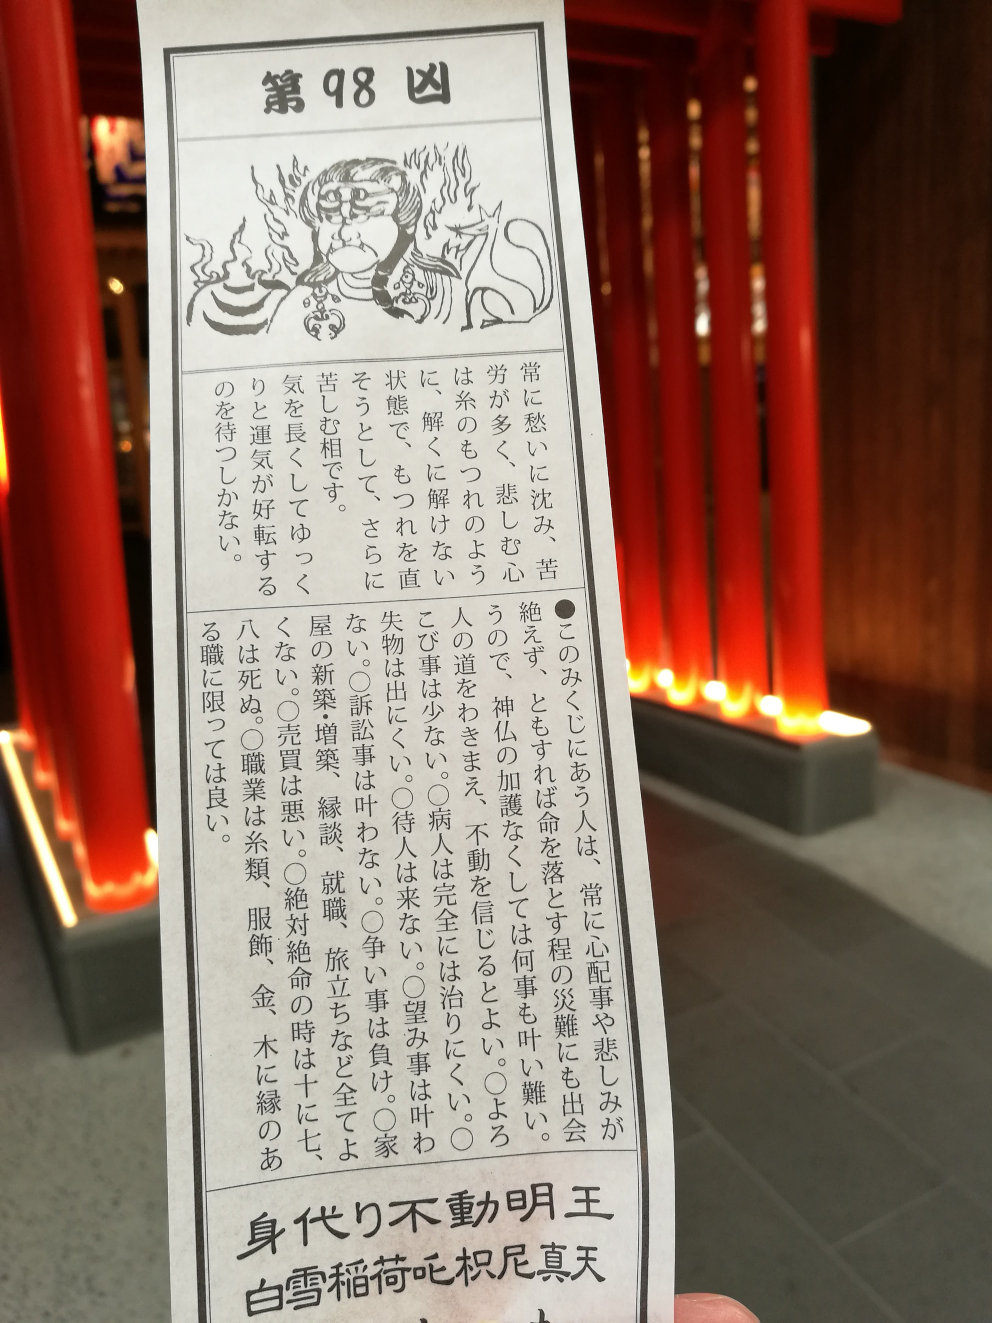 第98 凶
常に愁いに沈み、苦
労が多く、悲しむ心
は糸のもつれのよう
に、解くに解けない
状態で、もつれを直
そうとして、さらに
苦しむ相です。
気を長くしてゆっく
りと運気が好転する
のを待つしかない。
●このみくじにあう人は、常に心配事や悲しみが
絶えず、ともすれば命を落とす程の災難にも出会
うので、神仏の加護なくしては何事も叶い難い。
人の道をわきまえ、不動を信じるとよい。○よろ
こび事は少ない。○病人は完全には治りにくい。○
失物は出にくい。○待人は来ない。○望み事は叶わ
ない。○訴訟事は叶わない。○争い事は負け。○家
屋の新築・増築、縁談、就職、旅立ちなど全てよ
くない。○売買は悪い。○絶対絶命の時は十に七、
八は死ぬ。○職業は糸類、服飾、金、木に縁のあ
る職に限っては良い。
身代り不動明王
白雪稲荷吒枳尼真天